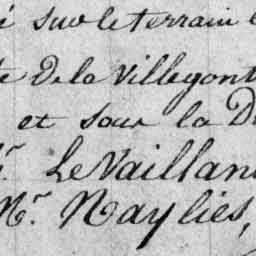 é sur le terrain
te De la Villegont
et sous la D
r. Le Vaillan
Mr. Naylies,